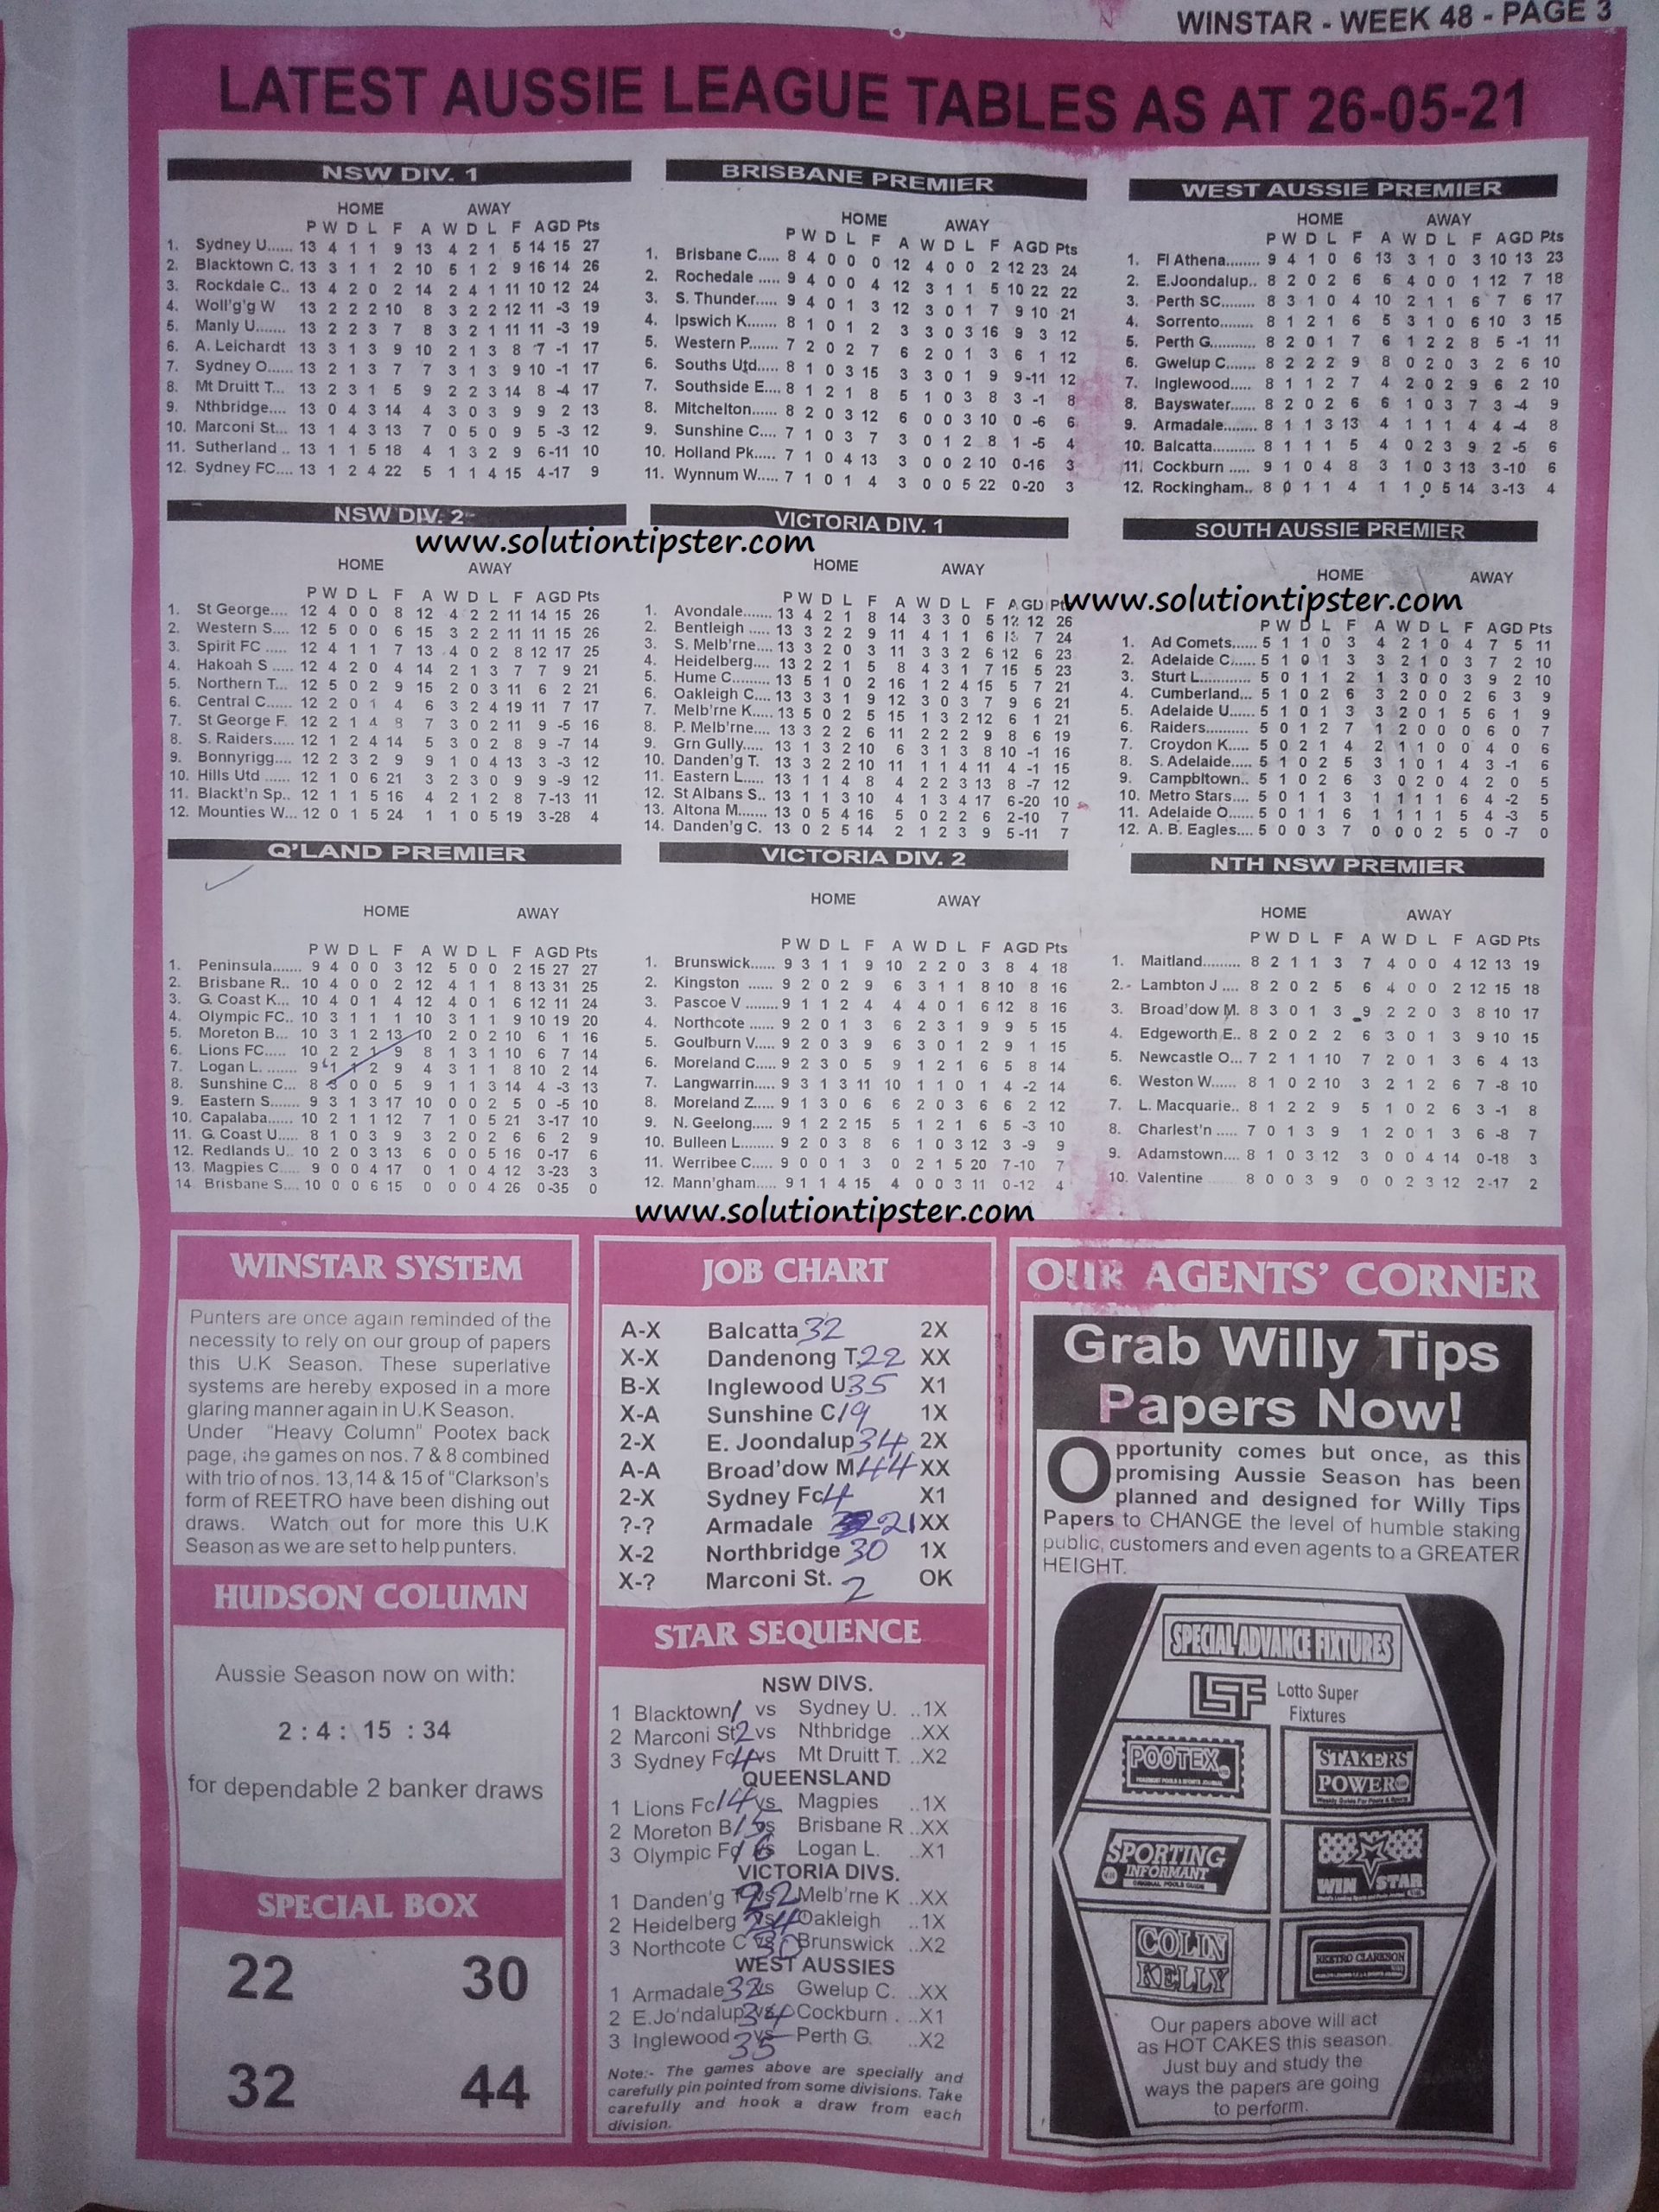 WINSTAR - WEEK 48 - PAGE 3
LATEST AUSSIE LEAGUE TABLES AS AT 26-05-21
NSW DIV. 1
HOME AWAY
P W D L F A W D L F A GD Pts
1. Sydney U...... 13 4 1 1 9 13 4 2 1 5 14 15 27
2. Blacktown C. 13 3 1 1 2 10 5 1 2 9 16 14 26
3. Rockdale C.. 13 4 2 0 2 14 2 4 1 11 10 12 24
4. Woll'g'g W 13 2 2 2 10 8 3 2 2 12 11 -3 19
5. Manly U....... 13 2 2 3 7 8 3 2 1 11 11 -3 19
6. A. Leichardt 13 3 1 3 9 10 2 1 3 8 7 -1 17
7. Sydney O.... 13 2 1 3 7 7 3 1 3 9 10 -1 17
8. Mt Druitt T... 13 2 3 1 5 9 2 2 3 14 8 -4 17
9. Nthbridge.... 13 0 4 3 14 4 3 0 3 9 9 2 13
10. Marconi St... 13 1 4 3 13 7 0 5 0 9 5 -3 12
11. Sutherland .. 13 1 1 5 18 4 1 3 2 9 6 -11 10
12. Sydney FC.... 13 1 2 4 22 5 1 1 4 15 4 -17 9
BRISBANE PREMIER
HOME AWAY
P W D L F A W D L F A GD Pts
1. Brisbane C..... 8 4 0 0 0 12 4 0 0 2 12 23 24
2. Rochedale ..... 9 4 0 0 4 12 3 1 1 5 10 22 22
3. S. Thunder..... 9 4 0 1 3 12 3 0 1 7 9 10 21
4. Ipswich K....... 8 1 0 1 2 3 3 0 3 16 9 3 12
5. Western P....... 7 2 0 2 7 6 2 0 1 3 6 1 12
6. Souths Utd..... 8 1 0 3 15 3 3 0 1 9 9 -11 12
7. Southside E.... 8 1 2 1 8 5 1 0 3 8 3 -1 8
8. Mitchelton...... 8 2 0 3 12 6 0 0 3 10 0 -6 6
9. Sunshine C.... 7 1 0 3 7 3 0 1 2 8 1 -5 4
10. Holland Pk..... 7 1 0 4 13 3 0 0 2 10 0 -16 3
11. Wynnum W..... 7 1 0 1 4 3 0 0 5 22 0 -20 3
WEST AUSSIE PREMIER
HOME AWAY
P W D L F A W D L F A GD Pts
1. Fl Athena........ 9 4 1 0 6 13 3 1 0 3 10 13 23
2. E.Joondalup.. 8 2 0 2 6 6 4 0 0 1 12 7 18
3. Perth SC........ 8 3 1 0 4 10 2 1 1 6 7 6 17
4. Sorrento........ 8 1 2 1 6 5 3 1 0 6 10 3 15
5. Perth G.......... 8 2 0 1 7 6 1 2 2 8 5 -1 11
6. Gwelup C....... 8 2 2 2 9 8 0 2 0 3 2 6 10
7. Inglewood..... 8 1 1 2 7 4 2 0 2 9 6 2 10
8. Bayswater...... 8 2 0 2 6 6 1 0 3 7 3 -4 9
9. Armadale........ 8 1 1 3 13 4 1 1 1 4 4 -4 8
10. Balcatta......... 8 1 1 1 5 4 0 2 3 9 2 -5 6
11. Cockburn ..... 9 1 0 4 8 3 1 0 3 13 3 -10 6
12. Rockingham.. 8 0 1 1 4 1 1 0 5 14 3 -13 4
NSW DIV. 2
www.solutiontipster.com
HOME AWAY
P W D L F A W D L F A GD Pts
1. St George.... 12 4 0 0 8 12 4 2 2 11 14 15 26
2. Western S.... 12 5 0 0 6 15 3 2 2 11 11 15 26
3. Spirit FC ..... 12 4 1 1 7 13 4 0 2 8 12 17 25
4. Hakoah S .... 12 4 2 0 4 14 2 1 3 7 7 9 21
5. Northern T... 12 5 0 2 9 15 2 0 3 11 6 2 21
6. Central C...... 12 2 0 1 4 6 3 2 4 19 11 7 17
7. St George F. 12 2 1 4 8 7 3 0 2 11 9 -5 16
8. S. Raiders..... 12 1 2 4 14 5 3 0 2 8 9 -7 14
9. Bonnyrigg.... 12 2 3 2 9 9 1 0 4 13 3 -3 12
10. Hills Utd ...... 12 1 0 6 21 3 2 3 0 9 9 -9 12
11. Blackt'n Sp.. 12 1 1 5 16 4 2 1 2 8 7 -13 11
12. Mounties W... 12 0 1 5 24 1 1 0 5 19 3 -28 4
VICTORIA DIV. 1
HOME AWAY
P W D L F A W D L F A GD
1. Avondale....... 13 4 2 1 8 14 3 3 0 5 12 12 26
2. Bentleigh ..... 13 3 2 2 9 11 4 1 1 6 13 7 24
3. S. Melb'rne.... 13 3 2 0 3 11 3 3 2 6 12 6 23
4. Heidelberg.... 13 2 2 1 5 8 4 3 1 7 15 5 23
5. Hume C......... 13 5 1 0 2 16 1 2 4 15 5 7 21
6. Oakleigh C.... 13 3 3 1 9 12 3 0 3 7 9 6 21
7. Melb'rne K..... 13 5 0 2 5 15 1 3 2 12 6 1 21
8. P. Melb'rne.... 13 3 2 2 6 11 2 2 2 9 8 6 19
9. Grn Gully..... 13 1 3 2 10 6 3 1 3 8 10 -1 16
10. Danden'g T. 13 3 2 2 10 11 1 1 4 11 4 -1 15
11. Eastern L..... 13 1 1 4 8 4 2 2 3 13 8 -7 12
12. St Albans S.. 13 1 1 3 10 4 1 3 4 17 6 -20 10
13. Altona M....... 13 0 5 4 16 5 0 2 2 6 2 -10 7
14. Danden'g C. 13 0 2 5 14 2 1 2 3 9 5 -11 7
SOUTH AUSSIE PREMIER
HOME AWAY
www.solutiontipster.com
P W D L F A W D L F A GD Pts
1. Ad Comets...... 5 1 1 0 3 4 2 1 0 4 7 5 11
2. Adelaide C..... 5 1 0 1 3 3 2 1 0 3 7 2 10
3. Sturt L........... 5 0 1 1 2 1 3 0 0 3 9 2 10
4. Cumberland... 5 1 0 2 6 3 2 0 0 2 6 3 9
5. Adelaide U...... 5 1 0 1 3 3 2 0 1 5 6 1 9
6. Raiders.......... 5 0 1 2 7 1 2 0 0 0 6 0 7
7. Croydon K..... 5 0 2 1 4 2 1 1 0 0 4 0 6
8. S. Adelaide..... 5 1 0 2 5 3 1 0 1 4 3 -1 6
9. Campbltown.. 5 1 0 2 6 3 0 2 0 4 2 0 5
10. Metro Stars.... 5 0 1 1 3 1 1 1 1 6 4 -2 5
11. Adelaide O..... 5 0 1 1 6 1 1 1 1 5 4 -3 5
12. A. B. Eagles.... 5 0 0 3 7 0 0 0 2 5 0 -7 0
Q'LAND PREMIER
HOME AWAY
P W D L F A W D L F A GD Pts
1. Peninsula....... 9 4 0 0 3 12 5 0 0 2 15 27 27
2. Brisbane R.. 10 4 0 0 2 12 4 1 1 8 13 31 25
3. G. Coast K... 10 4 0 1 4 12 4 0 1 6 12 11 24
4. Olympic FC.. 10 3 1 1 1 10 3 1 1 9 10 19 20
5. Moreton B... 10 3 1 2 13 10 2 0 2 10 6 1 16
6. Lions FC..... 10 2 2 1 9 8 1 3 1 10 6 7 14
7. Logan L. ....... 9 1 1 2 9 4 3 1 1 8 10 2 14
8. Sunshine C... 8 3 0 0 5 9 1 1 3 14 4 -3 13
9. Eastern S....... 9 3 1 3 17 10 0 0 2 5 0 -5 10
10. Capalaba...... 10 2 1 1 12 7 1 0 5 21 3 -17 10
11. G. Coast U..... 8 1 0 3 9 3 2 0 2 6 6 2 9
12. Redlands U.. 10 2 0 3 13 6 0 0 5 16 0 -17 6
13. Magpies C..... 9 0 0 4 17 0 1 0 4 12 3 -23 3
14. Brisbane S.... 10 0 0 6 15 0 0 0 4 26 0 -35 0
VICTORIA DIV. 2
HOME AWAY
P W D L F A W D L F A GD Pts
1. Brunswick...... 9 3 1 1 9 10 2 2 0 3 8 4 18
2. Kingston ...... 9 2 0 2 9 6 3 1 1 8 10 8 16
3. Pascoe V ........ 9 1 1 2 4 4 4 0 1 6 12 8 16
4. Northcote ...... 9 2 0 1 3 6 2 3 1 9 9 5 15
5. Goulburn V..... 9 2 0 3 9 6 3 0 1 2 9 1 15
6. Moreland C.... 9 2 3 0 5 9 1 2 1 6 5 8 14
7. Langwarrin..... 9 3 1 3 11 10 1 1 0 1 4 -2 14
8. Moreland Z..... 9 1 3 0 6 6 2 0 3 6 6 2 12
9. N. Geelong..... 9 1 2 2 15 9 1 2 1 6 5 -3 10
10. Bulleen L........ 9 2 0 3 8 6 1 0 3 12 3 -9 9
11. Werribee C..... 9 0 0 1 3 0 2 1 5 20 7 -10 7
12. Mann'gham..... 9 1 1 4 15 4 0 0 3 11 0 -12 4
NTH NSW PREMIER
HOME AWAY
P W D L F A W D L F A GD Pts
1. Maitland......... 8 2 1 1 3 7 4 0 0 4 12 13 19
2. Lambton J .... 8 2 0 2 5 6 4 0 0 2 12 15 18
3. Broad'dow M. 8 3 0 1 3 9 2 2 0 3 8 10 17
4. Edgeworth E.. 8 2 0 2 2 6 3 0 1 3 9 10 15
5. Newcastle O... 7 2 1 1 10 7 2 0 1 3 6 4 13
6. Weston W...... 8 1 0 2 10 3 2 1 2 6 7 -8 10
7. L. Macquarie.. 8 1 2 2 9 5 1 0 2 6 3 -1 8
8. Charlest'n ..... 7 0 1 3 9 1 2 0 1 3 6 -8 7
9. Adamstown.... 8 1 0 3 12 3 0 0 4 14 0 -18 3
10. Valentine 8 0 0 3 9 0 0 2 3 12 2 -17 2
www.solutiontipster.com
WINSTAR SYSTEM
Punters are once again reminded of the
necessity to rely on our group of papers
this U.K Season. These superlative
systems are hereby exposed in a more
glaring manner again in U.K Season.
Under "Heavy Column" Pootex back
page, the games on nos. 7 & 8 combined
with trio of nos. 13, 14 & 15 of "Clarkson's
form of REETRO have been dishing out
draws. Watch out for more this U.K
Season as we are set to help punters.
HUDSON COLUMN
Aussie Season now on with:
2 : 4 : 15 : 34
for dependable 2 banker draws
SPECIAL BOX
22 30
32 44
JOB CHART
A-X Balcatta 32 2X
X-X Dandenong T. 22 XX
B-X Inglewood U 35 X1
X-A Sunshine C 19 1X
2-X E. Joondalup 34 2X
A-A Broad'dow M 44 XX
2-X Sydney Fc 4 X1
?-? Armadale 21 XX
X-2 Northbridge 30 1X
X-? Marconi St. 2 OK
STAR SEQUENCE
NSW DIVS.
1 Blacktown 1 vs Sydney U. ..1X
2 Marconi St 2 vs Nthbridge ..XX
3 Sydney Fc 4 vs Mt Druitt T. ..X2
QUEENSLAND
1 Lions Fc 14 vs Magpies ..1X
2 Moreton B 15 vs Brisbane R ..XX
3 Olympic Fc 16 vs Logan L. ..X1
VICTORIA DIVS.
1 Danden'g T 22 vs Melb'rne K ..XX
2 Heidelberg 24 vs Oakleigh ..1X
3 Northcote C 30 vs Brunswick ..X2
WEST AUSSIES
1 Armadale 32 vs Gwelup C. ..XX
2 E.Jo'ndalup 34 vs Cockburn . ..X1
3 Inglewood 35 vs Perth G. ..X2
Note:- The games above are specially and
carefully pin pointed from some divisions. Take
carefully and hook a draw from each
division.
OUR AGENTS' CORNER
Grab Willy Tips
Papers Now!
Opportunity comes but once, as this
promising Aussie Season has been
planned and designed for Willy Tips
Papers to CHANGE the level of humble staking
public, customers and even agents to a GREATER
HEIGHT.
SPECIAL ADVANCE FIXTURES
LSF Lotto Super
Fixtures
POOTEX
STAKERS
POWER
SPORTING
INFORMANT
WIN STAR
COLIN
KELLY
REETRO CLARKSON
Our papers above will act
as HOT CAKES this season.
Just buy and study the
ways the papers are going
to perform.